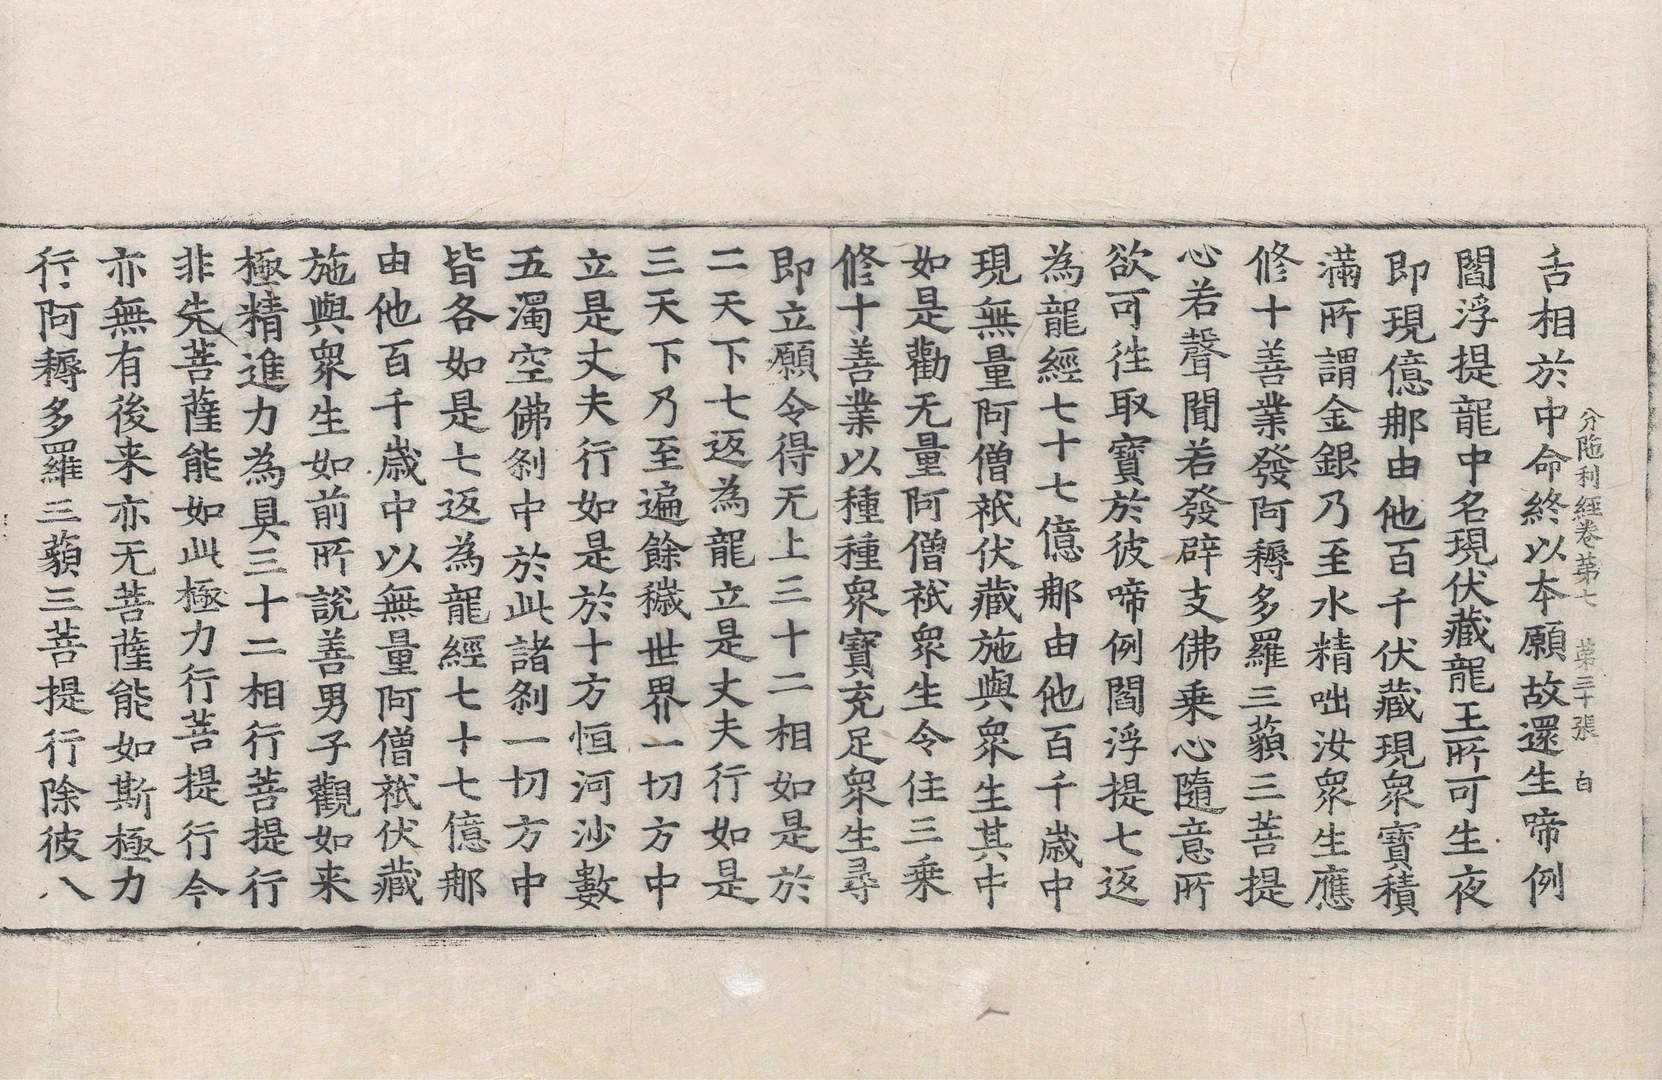 分陁利經卷第七 第三十張 白
舌相於中命終以本願故還生啼例
閻浮提龍中名現伏藏龍王所可生夜
即現億那由他百千伏藏現衆寶積
滿所謂金銀乃至水精咄汝衆生應
修十善業發阿耨多羅三藐三菩提
心若聲聞若發辟支佛乘心隨意所
欲可往取寶於彼啼例閻浮提七返
為龍經七十七億那由他百千歲中
現無量阿僧祇伏藏施與衆生其中
如是勸无量阿僧祇衆生令住三乘
修十善業以種種衆寶充足衆生尋
即立願令得无上三十二相如是於
二天下七返為龍立是丈夫行如是
三天下乃至遍餘穢世界一切方中
立是丈夫行如是於十方恒河沙數
五濁空佛刹中於此諸刹一切方中
皆各如是七返為龍經七十七億那
由他百千歲中以無量阿僧祇伏藏
施與衆生如前所說善男子觀如来
極精進力為具三十二相行菩提行
非先菩薩能如此極力行菩提行今
亦無有後来亦无菩薩能如斯極力
行阿耨多羅三藐三菩提行除彼八